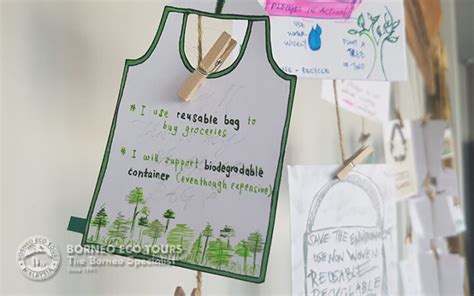 PLEDGE IN ACTION!
USE
WATER
WISELY
PLANT A
TREE
IN TWO
RE-CYCLE
* I use reusable bag to
buy groceries
* I will support biodegradable
container (eventhough expensive)
SAVE THE ENVIRONMENT
USE NON WOVEN
REUSABLE
RECYCLABLE
BORNEO ECO TOURS
The Borneo Specialist
Since 1991